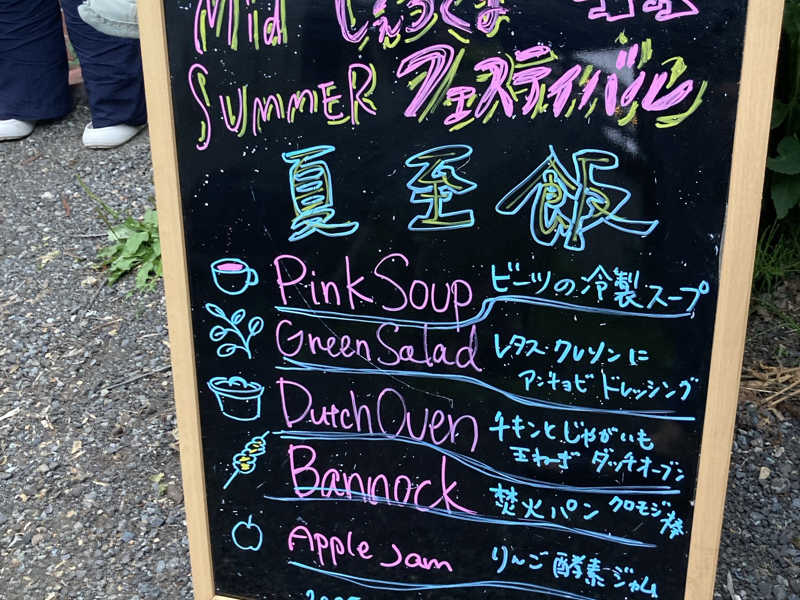 Mid
SUMMER フェスティバル
夏至飯
Pink Soup ビーツの冷製スープ
Green Salad レタス クレソンに
アンチョビ ドレッシング
Dutch Oven チキンとじゃがいも
玉ねぎ ダッチオーブン
Bannock 焚火パン クロモジ棒
Apple Jam りんご酵素ジャム